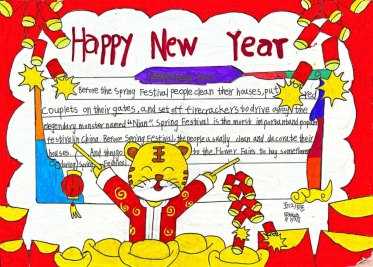 HAPPY NEW YEAR
Before the Spring Festival people clean their houses, put red
Couplets on their gates, and set off firecrackers to drive away the
legendary monster named "Nian". Spring Festival is the most important and popular
festival in China. Before Spring Festival, the people usually clean and decorate their
houses. And they go to the Flower Fairs to buy something
during Spring Festival.